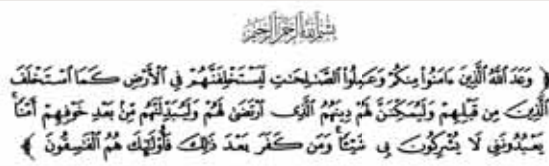 بسم الله الرحمن الرحيم
﴿ وَعَدَ اللَّهُ الَّذِينَ ءَامَنُوا مِنكُمْ وَعَمِلُوا الصَّـٰلِحَـٰتِ لَيَسْتَخْلِفَنَّهُمْ فِي الْأَرْضِ كَمَا اسْتَخْلَفَ
الَّذِينَ مِن قَبْلِهِمْ وَلَيُمَكِّنَنَّ لَهُمْ دِينَهُمُ الَّذِى ارْتَضَىٰ لَهُمْ وَلَيُبَدِّلَنَّهُم مِّنۢ بَعْدِ خَوْفِهِمْ أَمْنًا ۚ
يَعْبُدُونَنِى لَا يُشْرِكُونَ بِى شَيْـًٔا ۚ وَمَن كَفَرَ بَعْدَ ذَٰلِكَ فَأُولَـٰٓئِكَ هُمُ الْفَـٰسِقُونَ ﴾